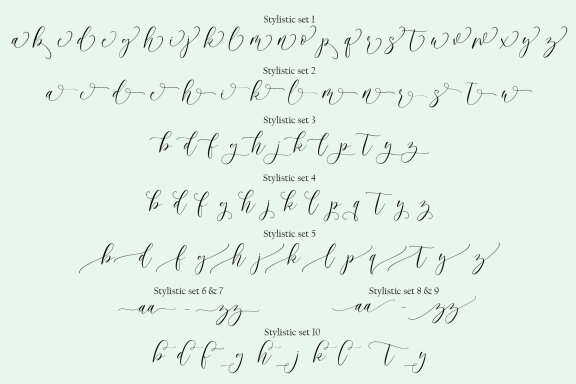 Stylistic set 1
a b c d e g h i j k l m n o p q r s t w v w x y z
Stylistic set 2
a c d e h i k l m n r s t w
Stylistic set 3
b d f g h j k l p t y z
Stylistic set 4
b d f g h j k l p q t y z
Stylistic set 5
b d f g h j k l p q t y z
Stylistic set 6 & 7
aa - zz
Stylistic set 8 & 9
aa - zz
Stylistic set 10
b d f g h j k l t y